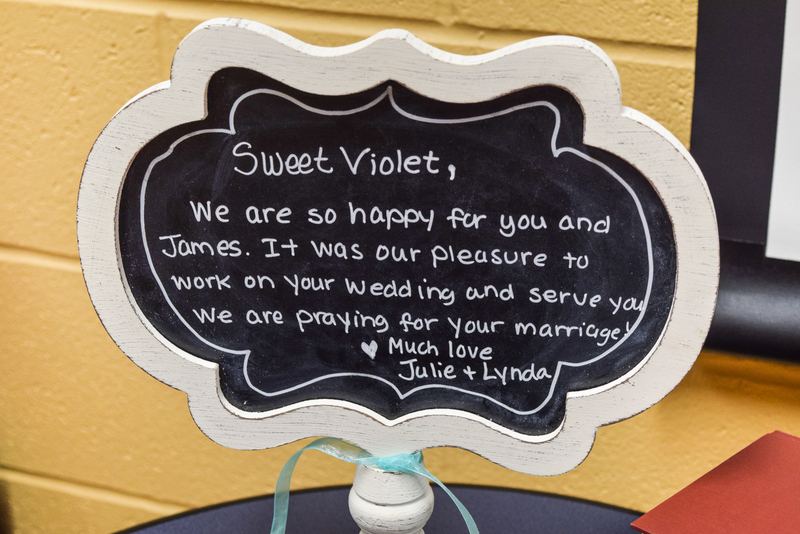 Sweet Violet,
We are so happy for you and
James. It was our pleasure to
work on your wedding and serve you
We are praying for your marriage!
♥ Much love
Julie + Lynda